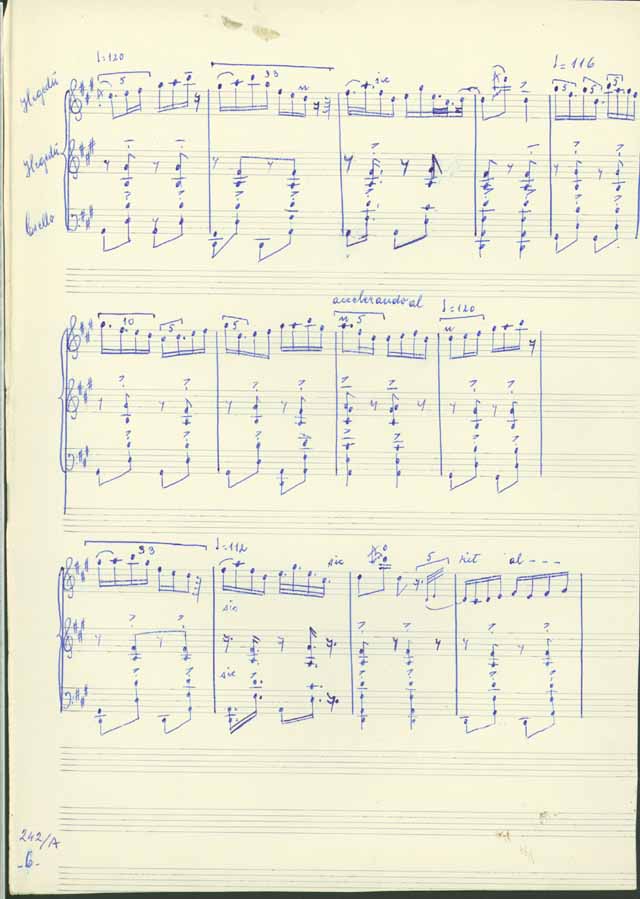 ♩=120
5
33
sic
♩=116
5
5
5
Hegedű
Hegedű
Csello
10
5
5
accelerando al
5
♩=120
33
♩=112
sic
5
rit al - - -
sic
sic
242/A
-6-